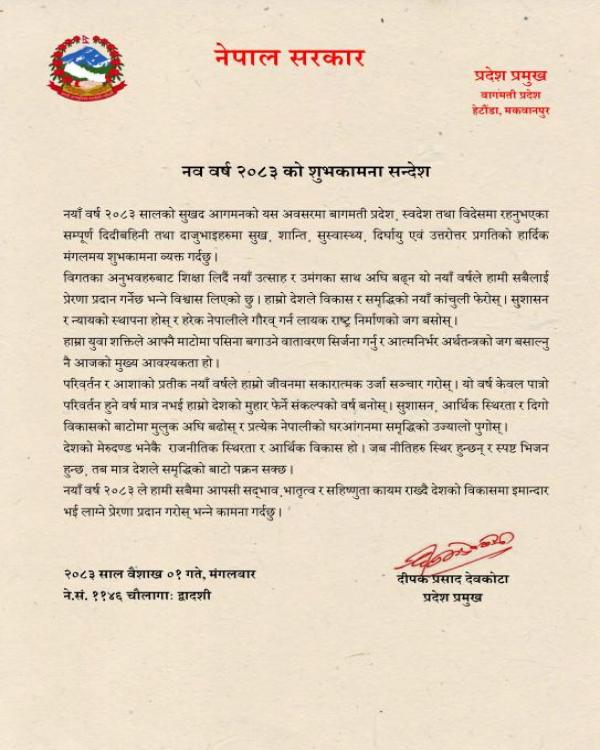 नेपाल सरकार
प्रदेश प्रमुख
बागमती प्रदेश
हेटौंडा, मकवानपुर
नव वर्ष २०८३ को शुभकामना सन्देश
नयाँ वर्ष २०८३ सालको सुखद आगमनको यस अवसरमा बागमती प्रदेश, स्वदेश तथा विदेसमा रहनुभएका
सम्पूर्ण दिदीबहिनी तथा दाजुभाइहरुमा सुख, शान्ति, सुस्वास्थ्य, दिर्घायु एवं उत्तरोत्तर प्रगतिको हार्दिक
मंगलमय शुभकामना व्यक्त गर्दछु।
विगतका अनुभवहरुबाट शिक्षा लिदैं नयाँ उत्साह र उमंगका साथ अघि बढ्न यो नयाँ वर्षले हामी सबैलाई
प्रेरणा प्रदान गर्नेछ भन्ने विश्वास लिएको छु। हाम्रो देशले विकास र समृद्धिको नयाँ कांचुली फेरोस्। सुशासन
र न्यायको स्थापना होस् र हरेक नेपालीले गौरव् गर्न लायक राष्ट्र निर्माणको जग बसोस्।
हाम्रा युवा शक्तिले आफ्नै माटोमा पसिना बगाउने वातावरण सिर्जना गर्नु र आत्मनिर्भर अर्थतन्त्रको जग बसाल्नु
नै आजको मुख्य आवश्यकता हो।
परिवर्तन र आशाको प्रतीक नयाँ वर्षले हाम्रो जीवनमा सकारात्मक उर्जा सञ्चार गरोस्। यो वर्ष केवल पात्रो
परिवर्तन हुने वर्ष मात्र नभई हाम्रो देशको मुहार फेर्ने संकल्पको वर्ष बनोस्। सुशासन, आर्थिक स्थिरता र दिगो
विकासको बाटोमा मुलुक अघि बढोस् र प्रत्येक नेपालीको घरआंगनमा समृद्धिको उज्यालो पुगोस्।
देशको मेरुदण्ड भनेकै राजनीतिक स्थिरता र आर्थिक विकास हो। जब नीतिहरु स्थिर हुन्छन् र स्पष्ट भिजन
हुन्छ, तब मात्र देशले समृद्धिको बाटो पक्रन सक्छ।
नयाँ वर्ष २०८३ ले हामी सबैमा आपसी सद्भाव,भातृत्व र सहिष्णुता कायम राख्दै देशको विकासमा इमान्दार
भई लाग्ने प्रेरणा प्रदान गरोस् भन्ने कामना गर्दछु।
२०८३ साल वैशाख ०१ गते, मंगलबार
ने.सं. ११४६ चौलागाः द्वादशी
दीपक प्रसाद देवकोटा
प्रदेश प्रमुख